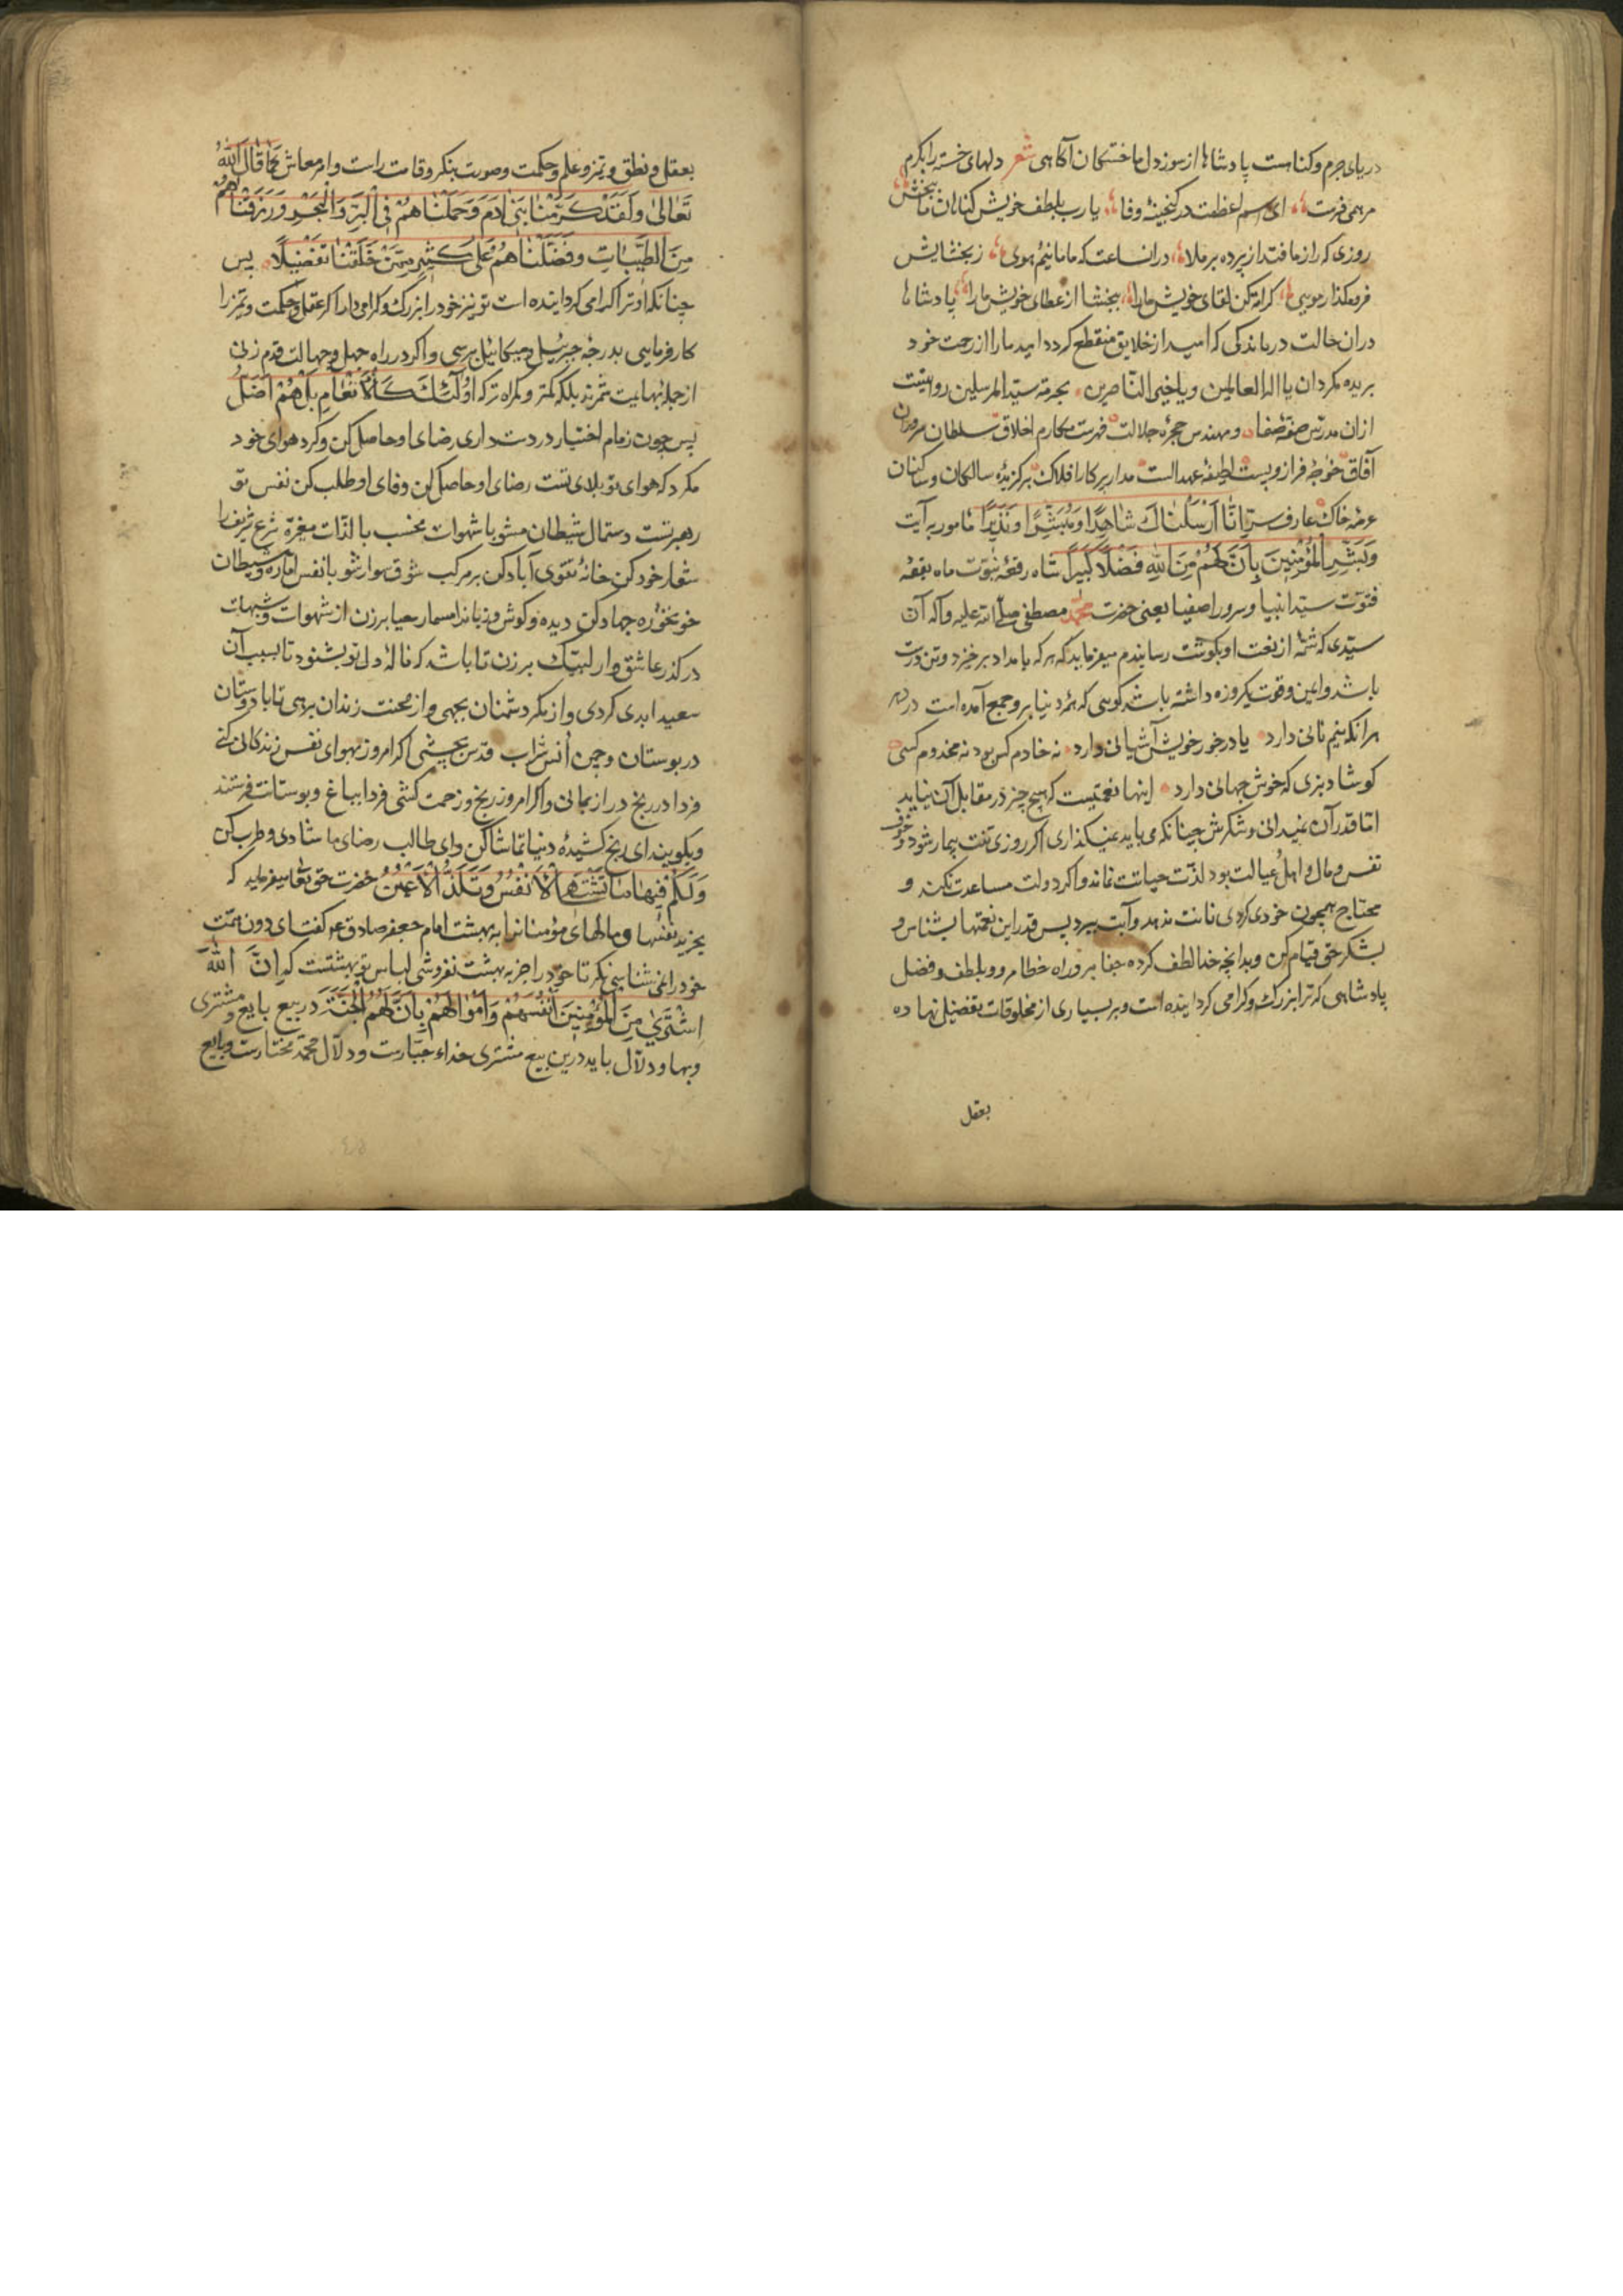 دریای جرم و کناست پادشاها از سوز دل ما خستکان آکاهی شعر دلهای خسته را بکرم
مرهمی فرست ای اسم اعظمت در کنجینهٔ وفا یا رب بلطف خویش کناهان ما ببخش
روزی که راز ما فتد از پرده بر ملا در انساعت که ما مانیم هویی ز بخشایش
فرو مکذار مویی کرامت کن لقای خویش ما را ببخشا از عطای خویش ما را پادشاها
دران حالت درماندکی که امید از خلایق منقطع کردد امید ما را از رحمت خود
بریده مکردان یا اله العالمین و یا خیر الناصرین بحرمة سید المرسلین روایتست
ازان مدرّس صفهٔ صفا و مهندس حجرهٔ جلالت فهرست مکارم اخلاق سلطان سروران
آفاق خواجهٔ فراز و پست لطیفهٔ عهد الست مدار پرکار افلاک برکزیدهٔ سالکان و ساکنان
عرصهٔ خاک عارف سرّ اِنّا اَرْسَلْناكَ شاهِدًا وَمُبَشِّرًا وَنَذيرًا مامور به آیت
وَبَشِّرِ الْمُؤْمِنينَ بِاَنَّ لَهُمْ مِنَ اللهِ فَضْلاً كَبيراً شاه رقعهٔ نبوّت ماه بقعهٔ
فتوّت سیّد انبیا و سرور اصفیا یعنی حضرت محمّد مصطفی صلی الله علیه و آله آن
سیّدی که شمّهٔ از نعت او بکوشت رسانیدم میفرماید که هر که بامداد برخیزد و تن درست
باشد و ایمن و قوت یکروزه داشته باشد کویی که همهٔ دنیا برو جمیع آمده است در دهر
هر انکه نیم نانی دارد یا در خور خویش آشیانی دارد نه خادم کس بود نه مخدوم کسی
کو شاد بزی که خوش جهانی دارد اینها نعمتیست که هیچ چیز در مقابل آن نیاید
امّا قدر آن نمیدانی و شکرش چنانکه می باید نمیکذاری اکر روزی تنت بیمار شود و خوف
نفس و مال و اهل عیالت بود لذّت حیاتت نماند و اکر دولت مساعدت نکند و
محتاج همچون خودی کردی نانت ندهد و آبت ببرد پس قدر این نعمتها بشناس و
بشکر حق قیام کن و بدانچه خدا لطف کرده جفا مبر و راه خطا مرو و بلطف و فضل
پادشاهی که ترا بزرک و کرامی کردانیده است و بر بسیاری از مخلوقات تفضیل نهاده
بعقل
بعقل و نطق و تمیز و علم و حکمت و صورت بنکر و قامت راست و امر معاش كَما قالَ اللهُ
تَعالى وَلَقَدْ كَرَّمْنا بَنى ادَمَ وَحَمَلْناهُمْ فِى الْبَرِّ وَالْبَحْرِ وَرَزَقْناهُمْ
مِنَ الطَّيِّباتِ وَفَضَّلْناهُمْ عَلى كَثيرٍ مِمَّنْ خَلَقْنا تَفْضيلاً پس
چنانکه او ترا کرامی کردانیده است تو نیز خود را بزرک و کرامی دار اکر عقل و حکمت و تمیز را
کار فرمایی بدرجهٔ جبرئیل و میکائیل برسی و اکر در راه جهل و جهالت قدم زنی
از جملهٔ بهایمت شمرند بلکه کمتر و کمراه تر که اُولئِكَ كَالْاَنْعامِ بَلْ هُمْ اَضَلُّ
پس چون زمام اختیار در دست داری رضای او حاصل کن و کرد هوای خود
مکرد که هوای تو بلای تست رضای او حاصل کن وفای او طلب کن نفس تو
رهبر تست دستمال شیطان مشو با شهوات مخسب با لذّات مغرّه شرع شریف را
شعار خود کن خانهٔ تقوی آباد کن بر مرکب شوق سوار شو با نفس امّاره و شیطان
خونخواره جهاد کن دیده و کوش و زبانرا مسمار حیا برزن از شهوات و شبهات
درکذر عاشق وار لبیک برزن تا باشد که نالهٔ دل تو بشنود تا بسبب آن
سعید ابدی کردی و از مکر دشمنان بجهی و از محنت زندان برهی تا با دوستان
در بوستان و چمن اُنس شراب قدس بچشی اکر امروز بهوای نفس زندکانی کنی
فردا در رنج دراز بمانی و اکر امروز رنج و زحمت کشی فردا بباغ و بوستانت فرستند
و بکویند ای رنج کشیدهٔ دنیا تماشا کن و ای طالب رضای ما شادی و طرب کن
وَلَكُمْ فيها ما تَشْتَهِى الْاَنْفُسُ وَتَلَذُّ الْاَعْيُنُ حضرت حق تعا میفرماید که
بخرید نفسها و مالهای مؤمنانرا به بهشت امام جعفر صادق ع کفت ای دون همّت
خود را نمی شناسی نکر تا خود را جز به بهشت نفروشی لباس تو بهشتست که اِنَّ اللهَ
اِشْتَرى مِنَ الْمُؤْمِنينَ اَنْفُسَهُمْ وَاَمْوالَهُمْ بِاَنَّ لَهُمُ الْجَنَّةَ در بیع بایع و مشتری
و بها و دلّال باید درین بیع مشتری خداء جبّارست و دلّال محمّد مختارست و بایع